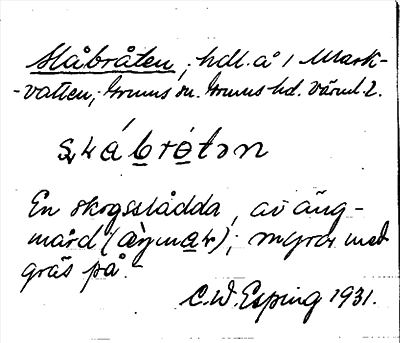 Slåbråten, hdl. å 1 Mark-
-vatten, Grums sn. Grums hd. Värml.
skåbrɵtən
En skogsslådda, av äng-
mård (æŋmar); myrar med
gräs på.
C. W. Esping 1931.